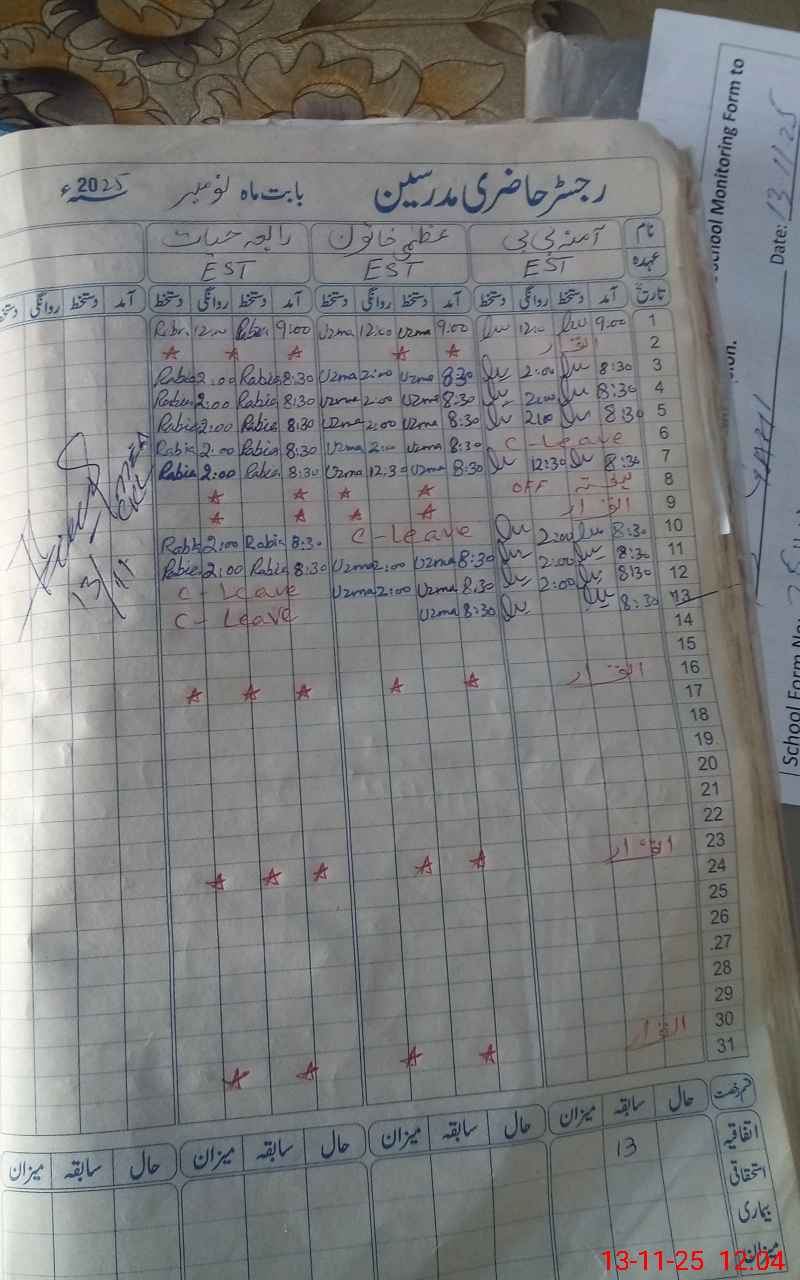 رجسٹر حاضری مدرسین بابت ماہ نومبر 2025ء
نام آمنہ بی بی عظمیٰ خاتون رابعہ حیات
عہدہ EST EST EST
تاریخ آمد دستخط روانگی دستخط آمد دستخط روانگی دستخط آمد دستخط روانگی دستخط آمد دستخط روانگی دستخط
1 9:00 12:00 9:00 Uzma 12:00 Uzma 9:00 Rabia 12:00
2 اتوار
3 8:30 2:00 8:30 Uzma 2:00 Uzma 8:30 Rabia 2:00 Rabia
4 8:30 2:00 8:30 Uzma 2:00 Uzma 8:30 Rabia 2:00 Rabia
5 8:30 2:00 8:30 Uzma 2:00 Uzma 8:30 Rabia 2:00 Rabia
6 C-Leave 8:30 Uzma 2:00 Uzma 8:30 Rabia 2:00 Rabia
7 8:30 12:30 8:30 Uzma 12:30 Uzma 8:30 Rabia 2:00 Rabia
8 ہفتہ OFF
9 اتوار
10 8:30 2:00 C-Leave 8:30 Rabia 2:00 Rabia
11 8:30 2:00 8:30 Uzma 2:00 Uzma 8:30 Rabia 2:00 Rabia
12 8:30 2:00 8:30 Uzma 2:00 Uzma C-Leave
13 8:30 8:30 Uzma C-Leave
14
15
16 اتوار
17
18
19
20
21
22
23 اتوار
24
25
26
27
28
29
30 اتوار
31
13/11
قسم رخصت حال سابقہ میزان حال سابقہ میزان حال سابقہ میزان حال سابقہ میزان
اتفاقیہ 13
استحقاقی
بیماری
میزان
School Monitoring Form to
Date: 13.11.25
School Form No:
13-11-25 12:04